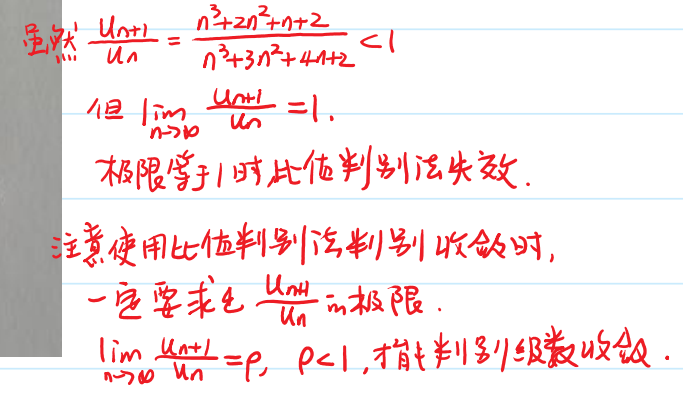 虽然 \frac{u_{n+1}}{u_n} = \frac{n^3+2n^2+n+2}{n^3+3n^2+4n+2} < 1
但 \lim_{n→∞} \frac{u_{n+1}}{u_n} = 1.
极限等于1时比值判别法失效.
注意使用比值判别法判别收敛时,
一定要求出 \frac{u_{n+1}}{u_n} 的极限.
\lim_{n→∞} \frac{u_{n+1}}{u_n} = ρ, ρ<1, 才能判别级数收敛.